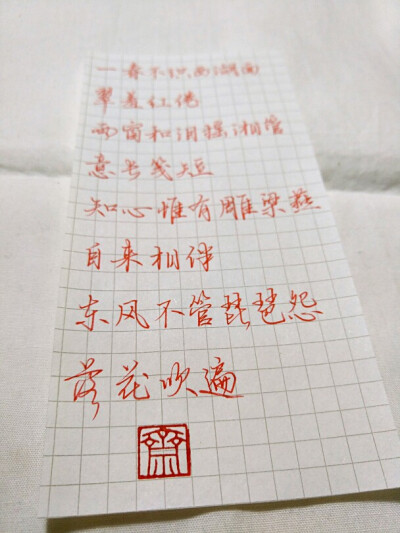 一春不识西湖面
翠羞红倦
雨窗和泪摇湘管
意长笺短
知心惟有雕梁燕
自来相伴
东风不管琵琶怨
落花吹遍
齋